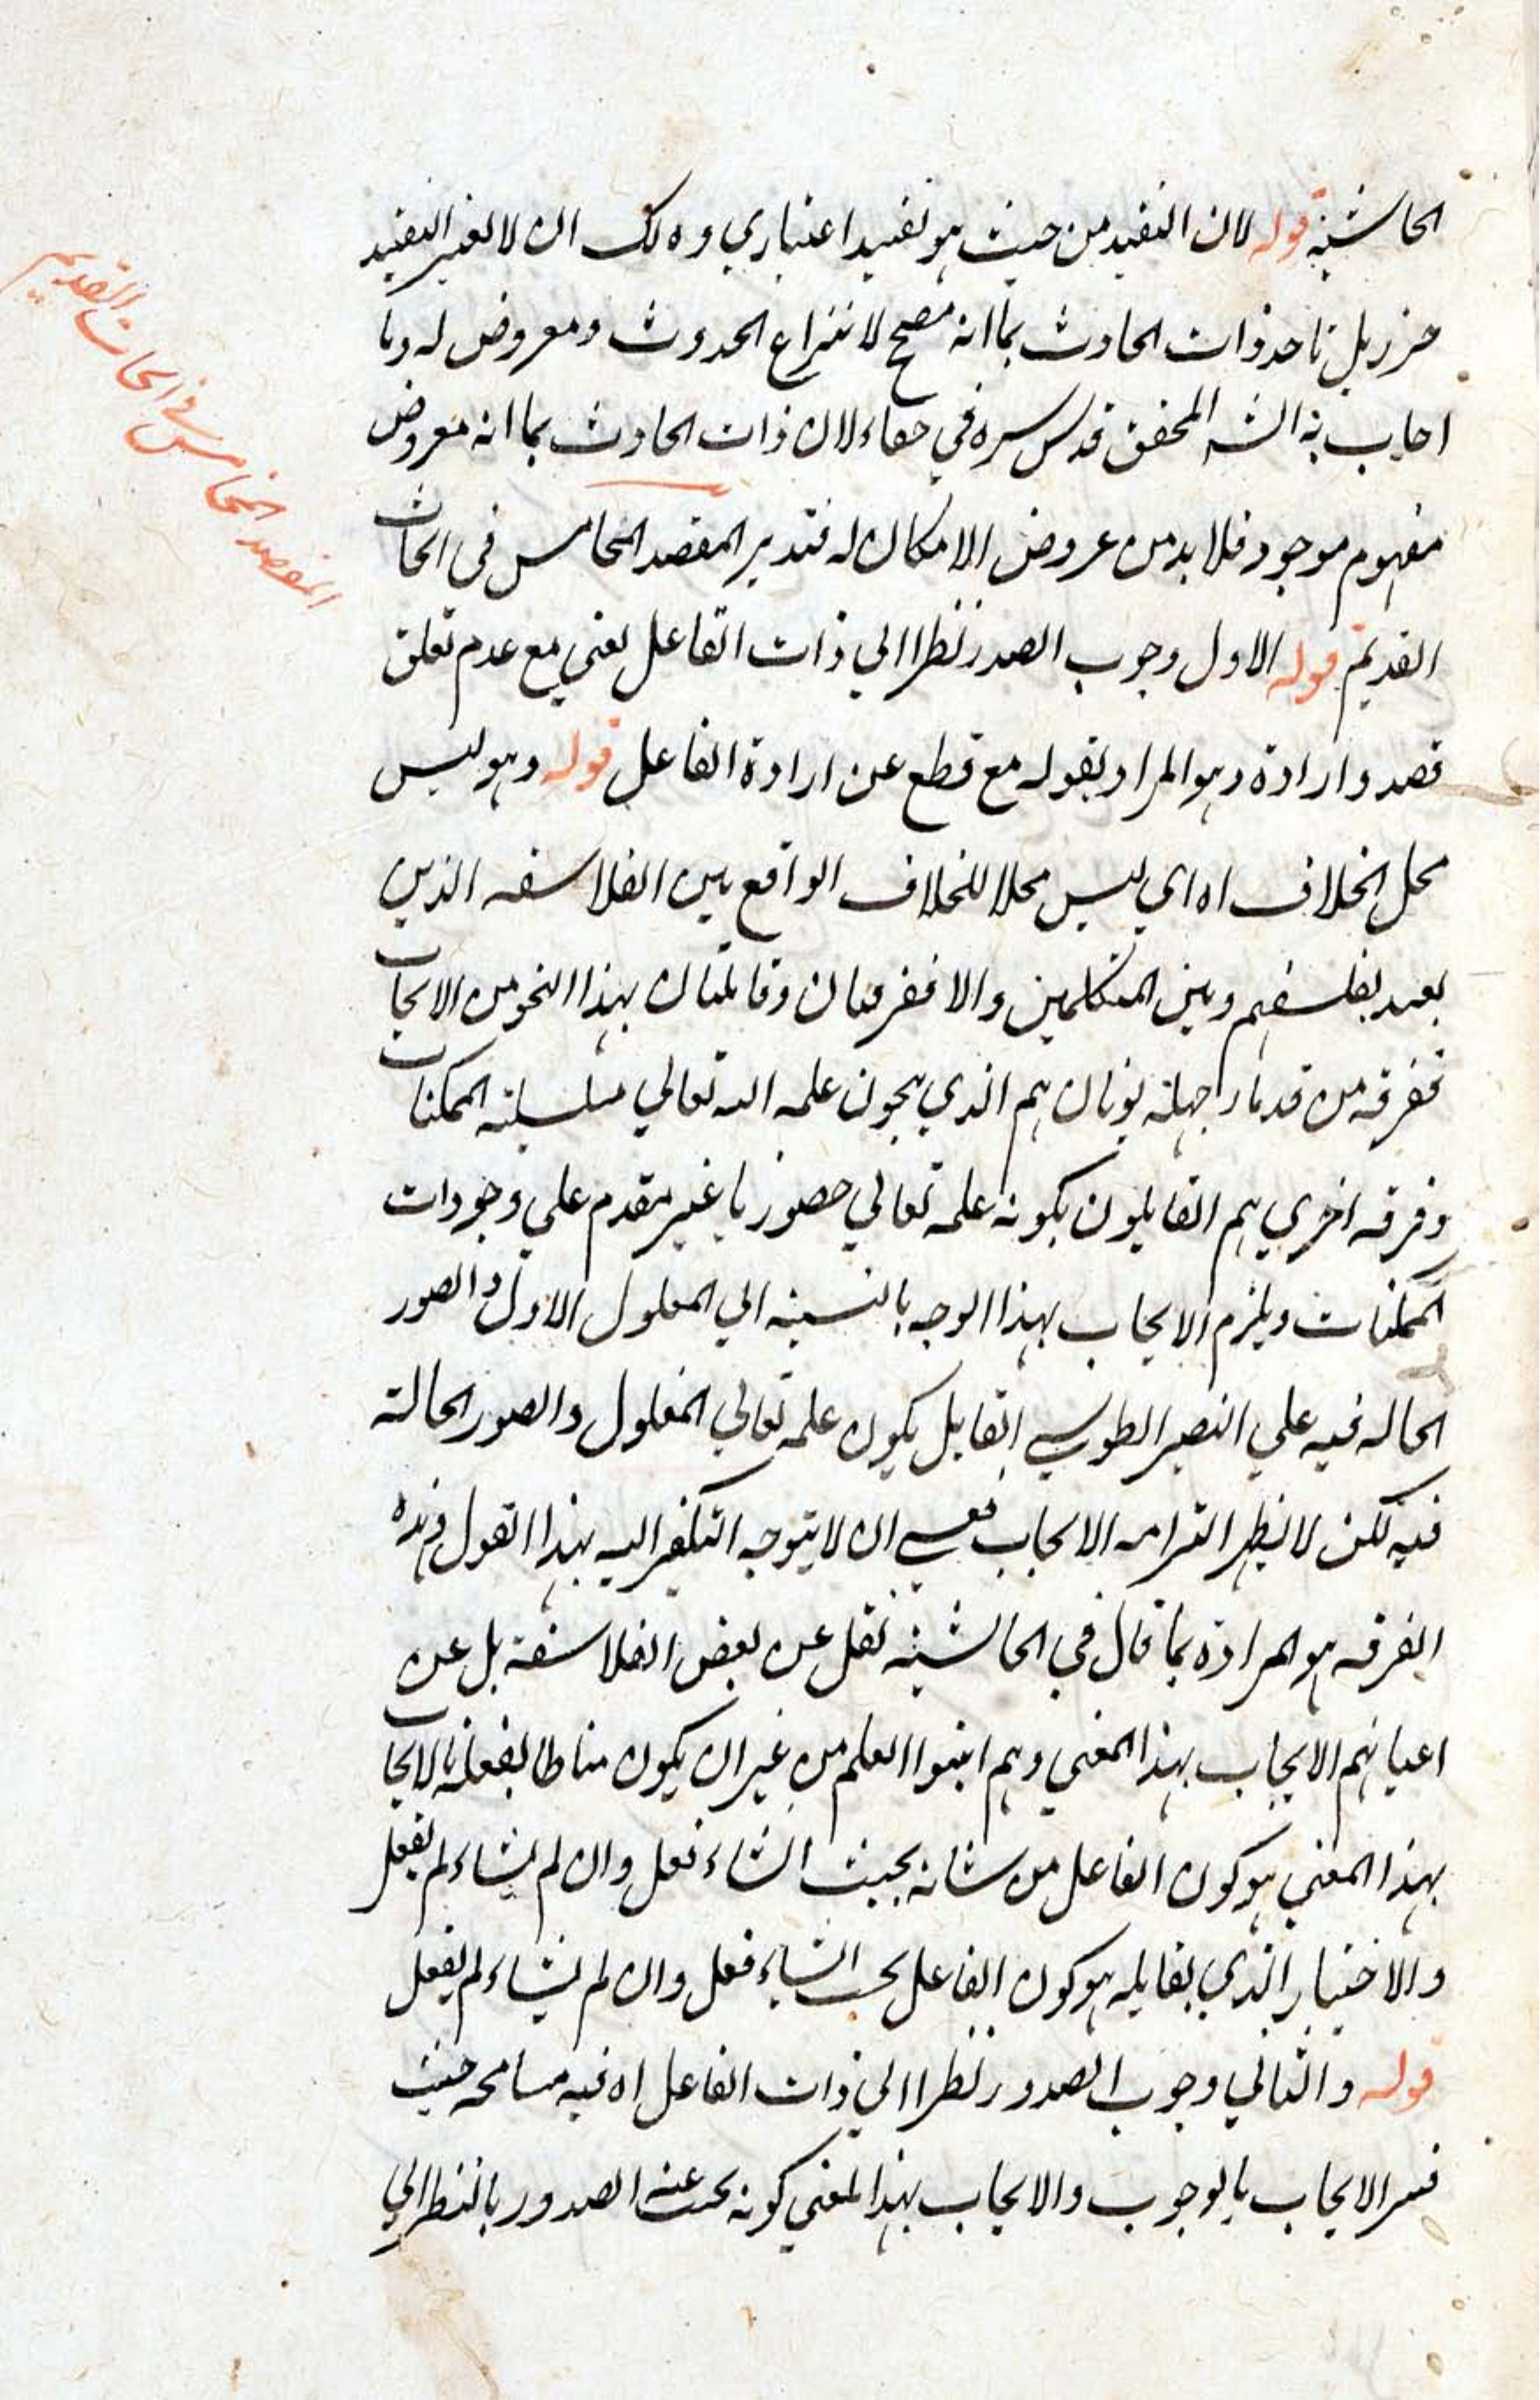 الحاشية قوله لان التقيد من حيث هو تقييد اعتباري وذلك ان لا نعتبر التقيد
جزء بل ناخذ ذات الحادث بما انه مصحح لانتزاع الحدوث ومعروض له وبا
اجاب به الش المحقق قدس سره في لان ذات الحادث بما انه معروض
مفهوم موجود فلا بد من عروض الامكان له فتدبر المقصد الخامس في ابحاث
القديم قوله الاول وجوب الصدر نظرا الي ذات الفاعل يعني مع عدم تعلق
قصد وارادة وهو المراد بقوله مع قطع عن ارادة الفاعل قوله وهو ليس
محل الخلاف اه اي ليس محلا للخلاف الواقع بين الفلاسفه الذين
يعبد بفلسفهم وبين المتكلمين والا ففرقتان قائلتان بهذا النحو من الايجاب
ففرقه من قدماء جهلة يونان هم الذي علمه الله تعالي سلسلة الممكنات
وفرقه اخري هم القايلون بكونه علمه تعالي حضوريا غير مقدم علي وجودات
الممكنات ويلزم الايجاب بهذا الوجه بالنسبة الي المعلول الاول والصور
الحاله فيه علي النصير الطوسي القايل بكون علمه تعالي المعلول والصور الحالة
فيه لكن لا يظهر التزامه الايجاب فعسي ان لا يتوجه التكفير اليه بهذا القول وهذه
الفرقه هو المرادة بما قال في الحاشية نقل عن بعض الفلاسفة بل عن
اعيانهم الايجاب بهذا المعني وهم اثبتوا العلم من غير ان يكون مناطا لفعله بالايجاب
بهذا المعني هو كون الفاعل من شانه بحيث انشاء فعل وان لم يشاء لم يفعل
والاختيار الذي يقابله هو كون الفاعل بحيث انشاء فعل وان لم يشاء لم يفعل
قوله والثاني وجوب الصدور نظرا الي ذات الفاعل اه فيه مسامحه حيث
فسر الايجاب بالوجوب والايجاب بهذا المعني كونه يجب عنه الصدور بالنظر الي
المقصد الخامس في ابحاث القديم